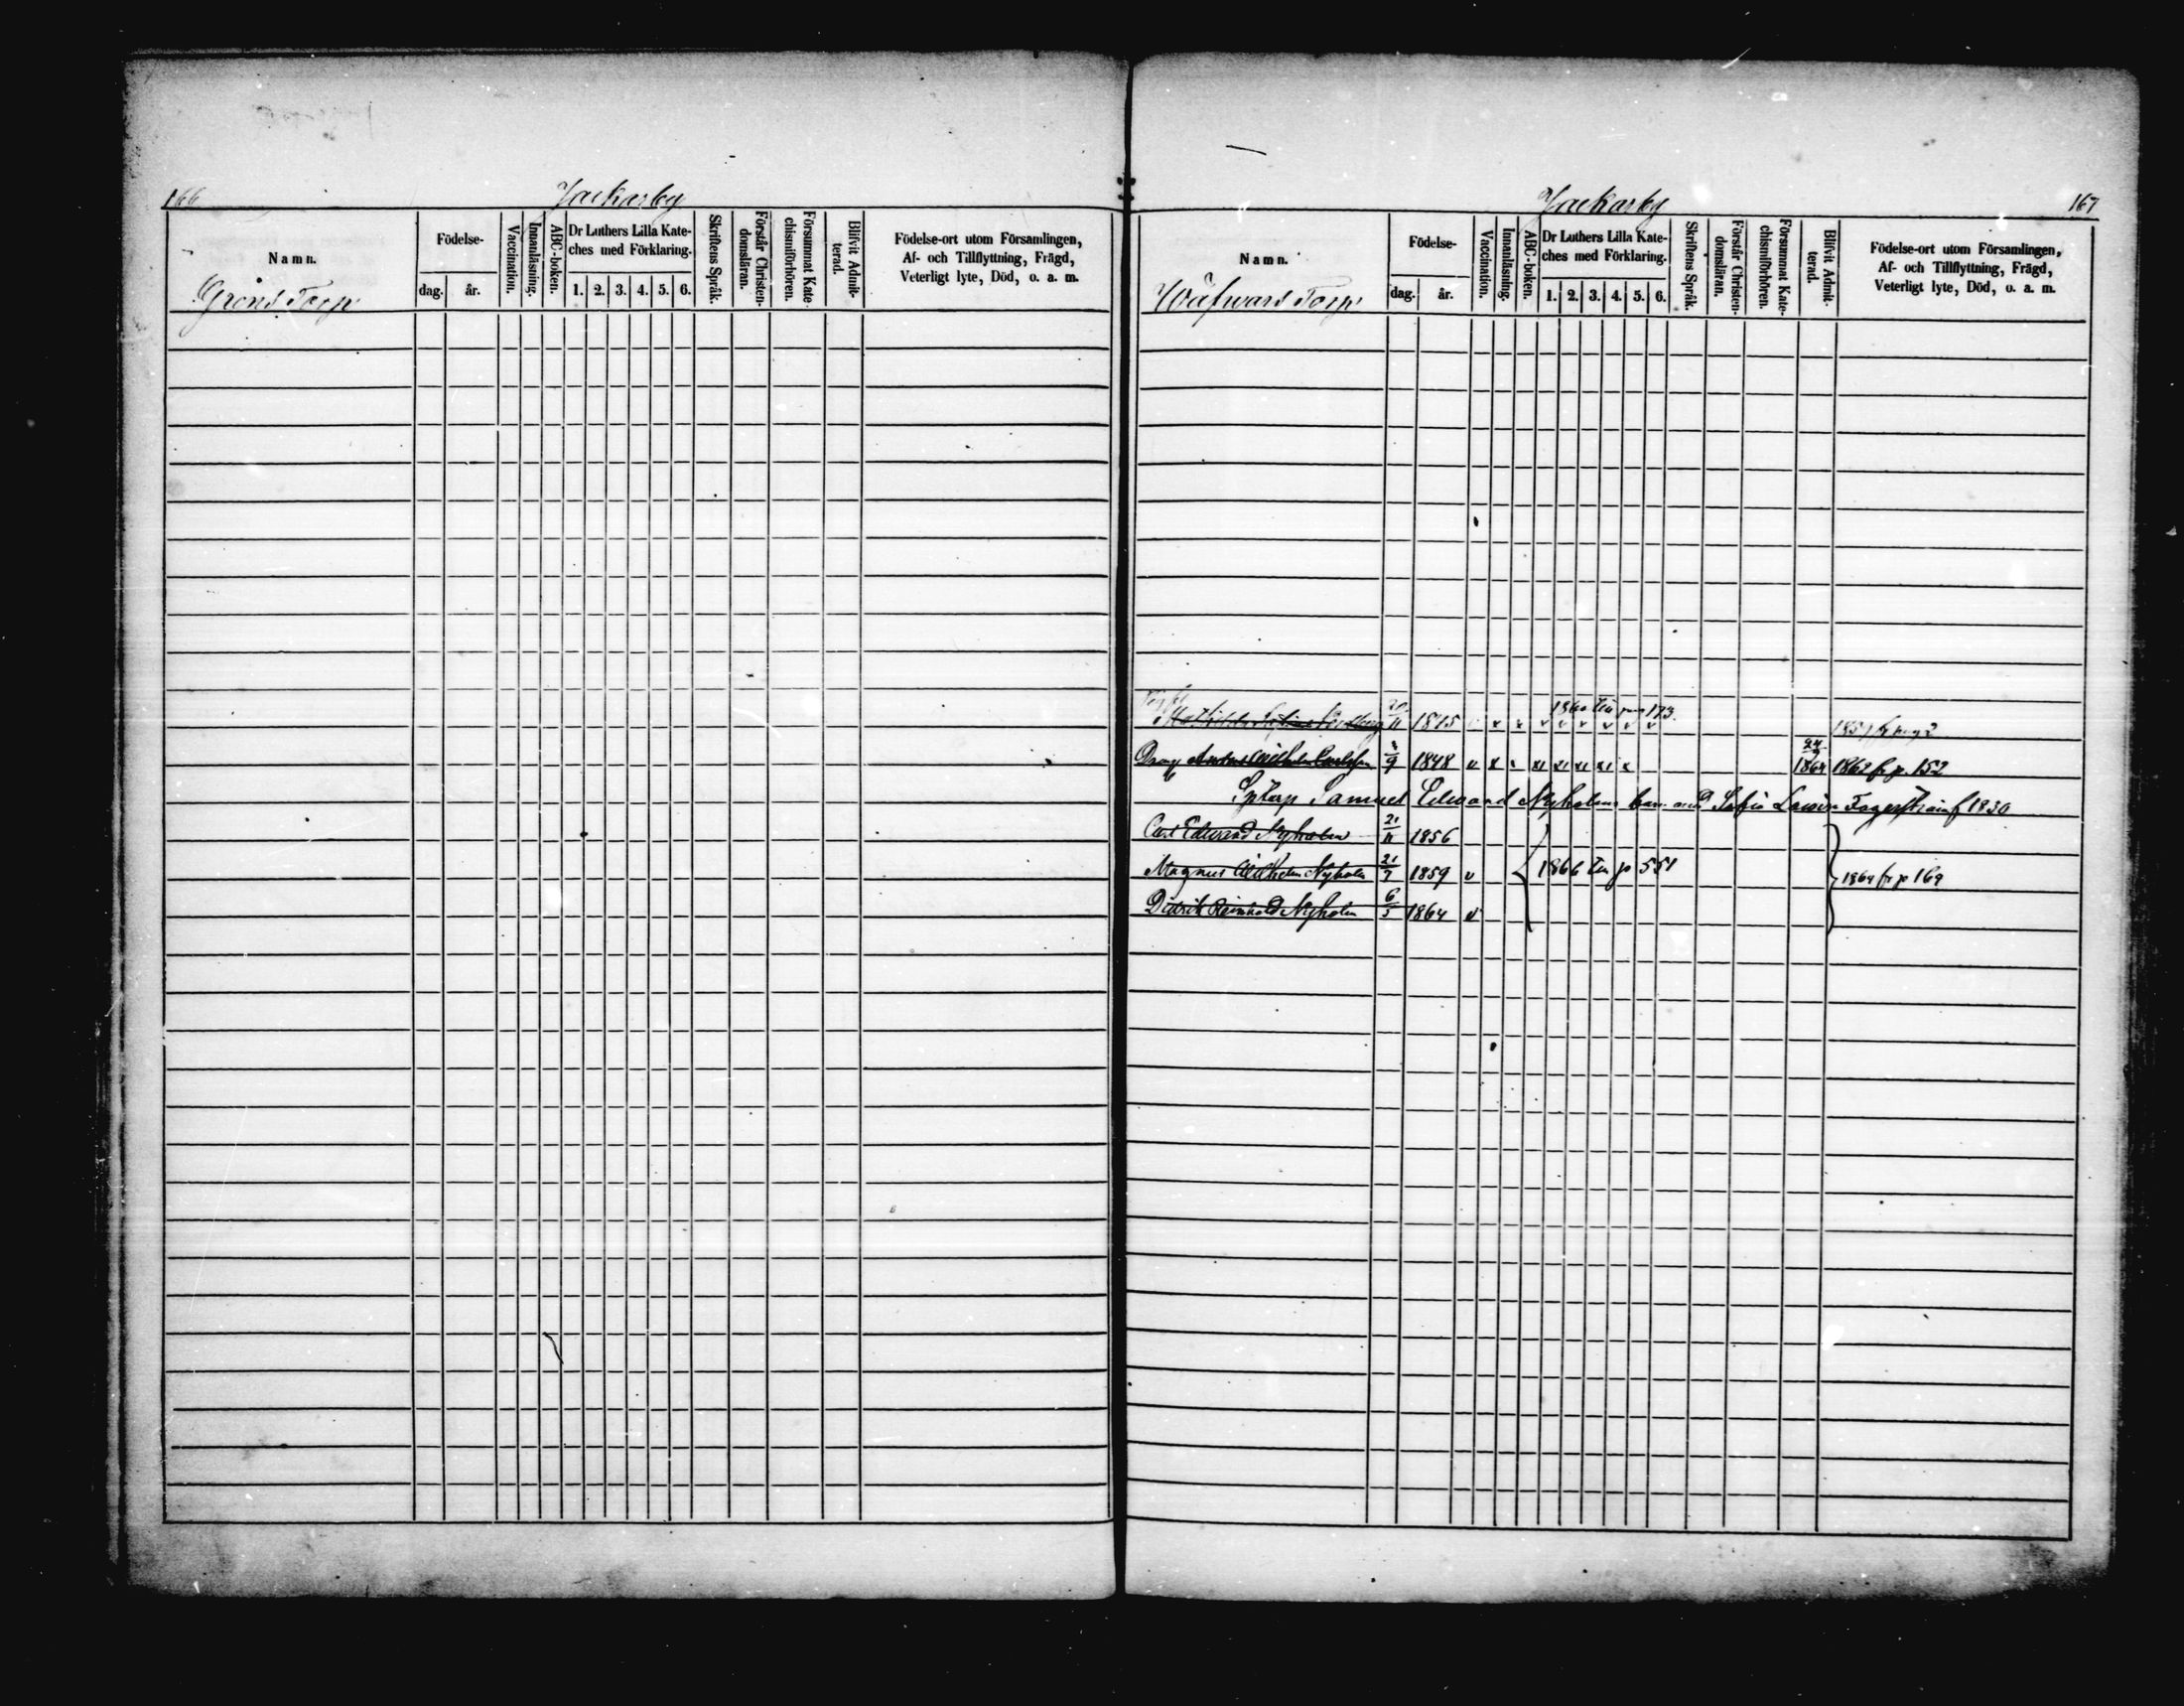 166
Jackarby
Namn.
Födelse-
dag.
år.
Vaccination.
Innanläsning.
ABC-boken.
Dr Luthers Lilla Kate-
ches med Förklaring.
1. 2. 3. 4. 5. 6.
Skriftens Språk.
Förstår Christen-
domsläran.
Försummat Kate-
chismiförhören.
Blifvit Admit-
terad.
Födelse-ort utom Församlingen,
Af- och Tillflyttning, Frägd,
Veterligt lyte, Död, o. a. m.
Gröns Torp
Jackarby
167
Namn.
Födelse-
dag.
år.
Vaccination.
Innanläsning.
ABC-boken.
Dr Luthers Lilla Kate-
ches med Förklaring.
1. 2. 3. 4. 5. 6.
Skriftens Språk.
Förstår Christen-
domsläran.
Försummat Kate-
chismiförhören.
Blifvit Admit-
terad.
Födelse-ort utom Församlingen,
Af- och Tillflyttning, Frägd,
Veterligt lyte, Död, o. a. m.
Wäfwars Torp
Mathilda 1845 1860 173
Dräng 1848 24/9 1864 1862 fr p. 152
Samuel Edward Nyholms barn med Sofia Lovisa f 1830
Carl Edward Nyholm 21/11 1856
Magnus Wilhelm Nyholm 21/7 1859 v 1866 p 551 1864 fr p 169
Didrik Reinhold Nyholm 6/5 1864 v